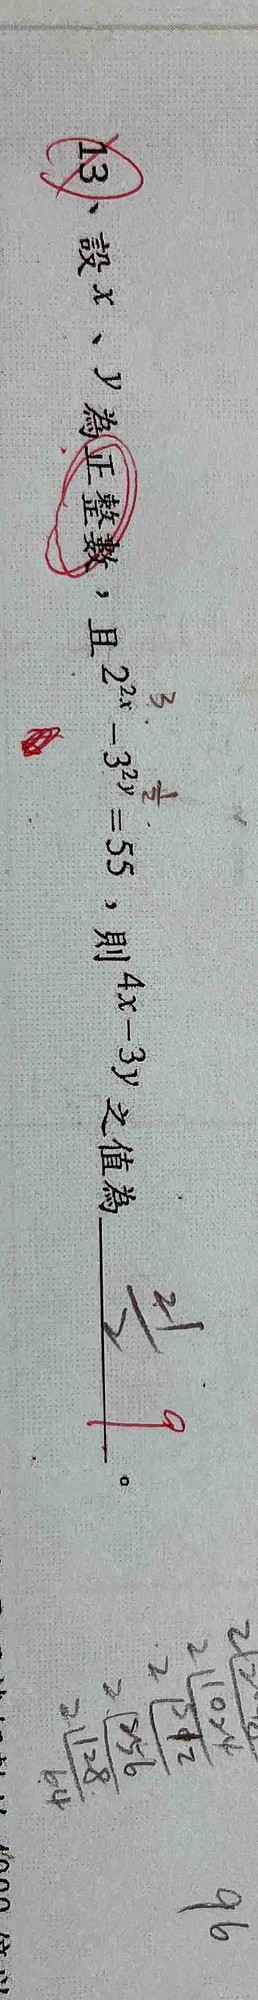 13、設x、y為正整數，且2^{2x}-3^{2y}=55，則4x-3y之值為____。
3
1/2
21/2
9
2 1024
2 512
2 256
2 128
64
96